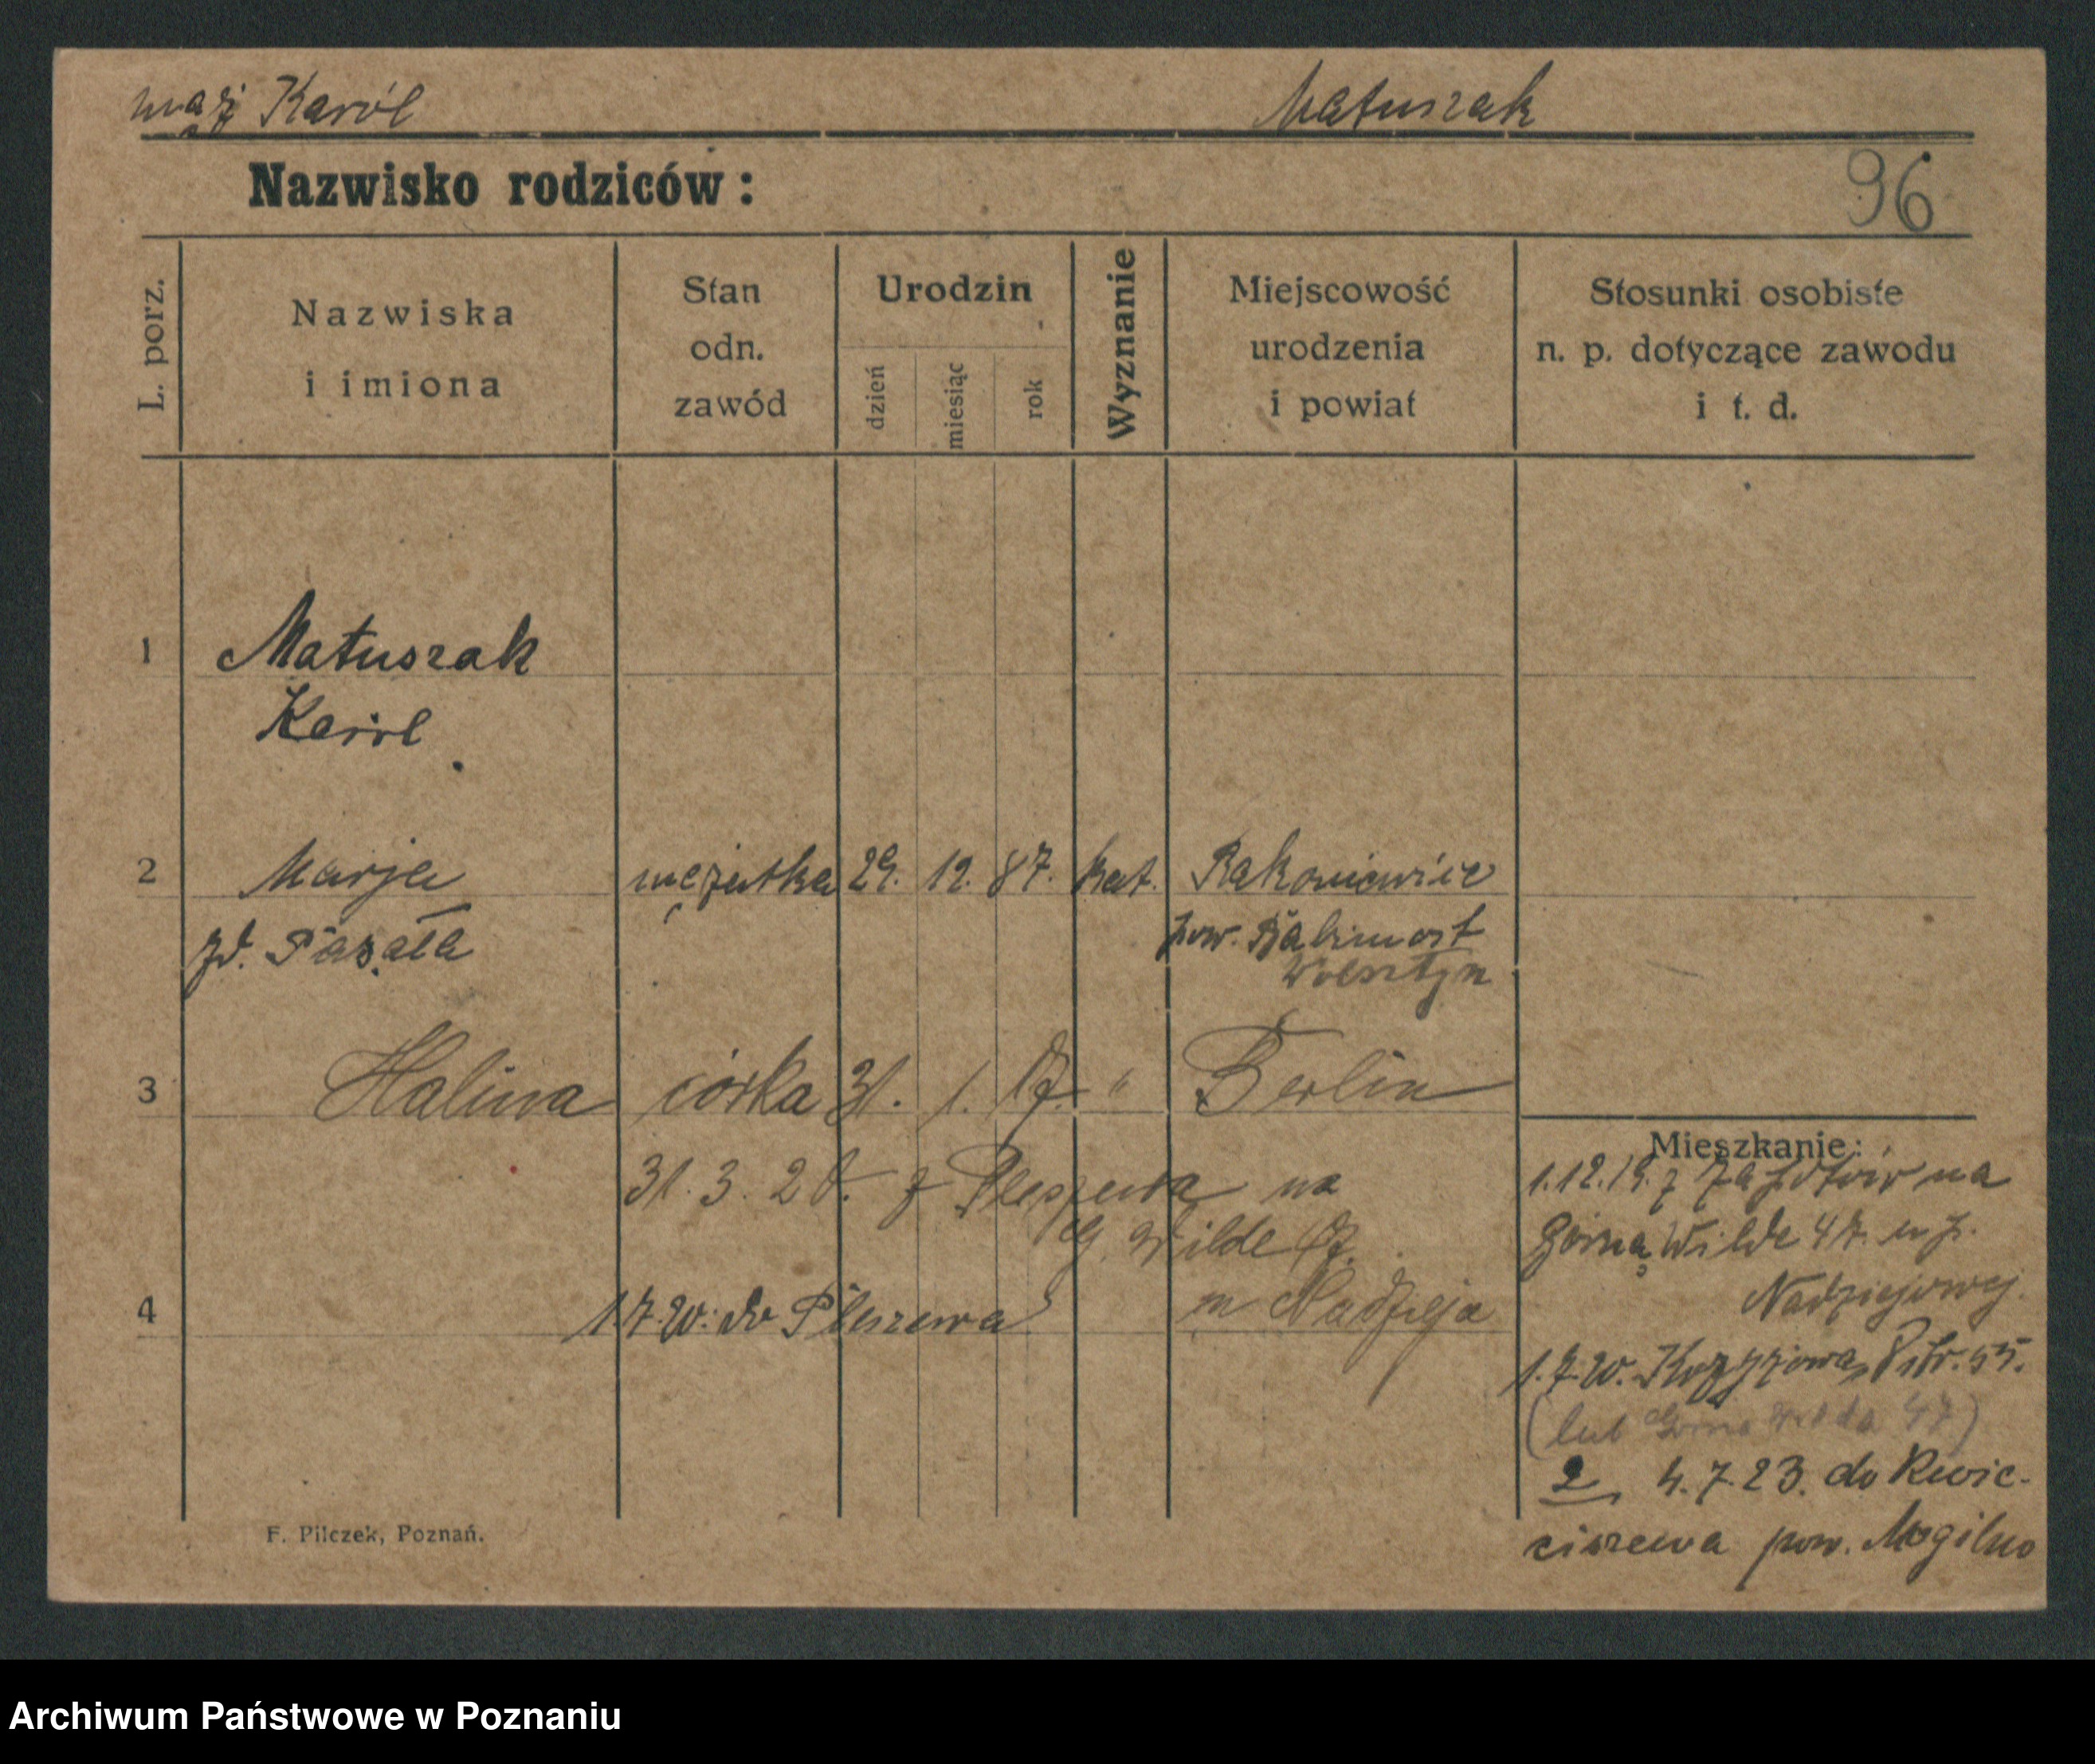 mąż Karól Matuszak
Nazwisko rodziców:
96
L. porz.
Nazwiska
i imiona
Stan
odn.
zawód
Urodzin
dzień
miesiąc
rok
Wyznanie
Miejscowość
urodzenia
i powiat
Stosunki osobiste
n. p. dotyczące zawodu
i t. d.
1 Matuszak
Karól
2 Marja mężatka 29. 12. 87. kat. Rakoniewice
zd. pow. Babimost
Wolsztyn
3 Halina córka 31. 1. 17. " Berlin
Mieszkanie:
31. 3. 20. z Pleszewa na
G. Wilde
4 1.7.20. do Pleszewa m Nadzieja
1.12.19. z na
Górną Wilde 47. u p.
Nadziejowej.
1.7.20.
(lub Górna Wilda 47)
2 4.7.23. do Kwie-
ciszewa pow. Mogilno
F. Pilczek, Poznań.
Archiwum Państwowe w Poznaniu